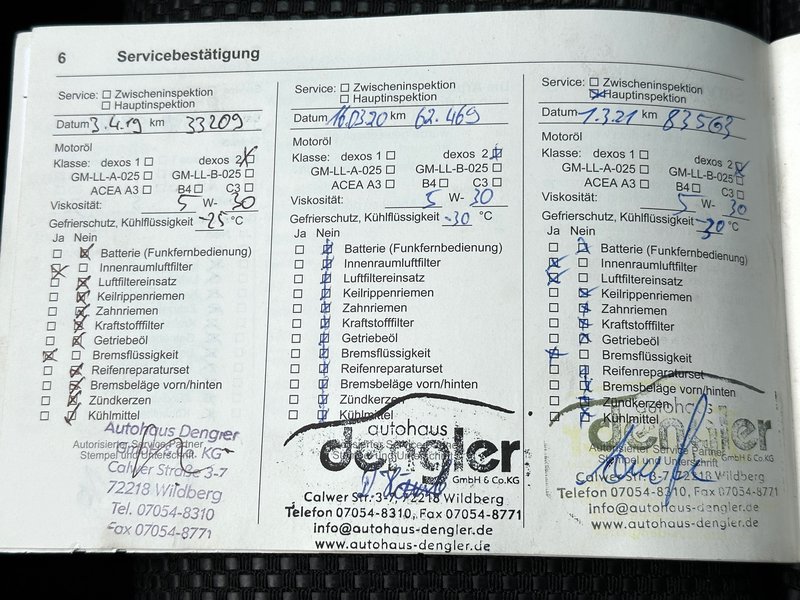 6 Servicebestätigung
Service: ☐ Zwischeninspektion
☐ Hauptinspektion
Datum 3.4.19 km 33209
Motoröl
Klasse: dexos 1 ☐ dexos 2 ☒
GM-LL-A-025 ☐ GM-LL-B-025 ☐
ACEA A3 ☐ B4 ☐ C3 ☐
Viskosität: 5 W- 30
Gefrierschutz, Kühlflüssigkeit -25 °C
Ja Nein
☐ ☒ Batterie (Funkfernbedienung)
☒ ☐ Innenraumluftfilter
☐ ☒ Luftfiltereinsatz
☐ ☒ Keilrippenriemen
☐ ☒ Zahnriemen
☐ ☒ Kraftstofffilter
☐ ☒ Getriebeöl
☒ ☐ Bremsflüssigkeit
☐ ☒ Reifenreparaturset
☐ ☒ Bremsbeläge vorn/hinten
☐ ☒ Zündkerzen
☐ ☒ Kühlmittel
Autohaus Dengler
Autorisierter Service Partner
GmbH & Co. KG
Stempel und Unterschrift
Calwer Straße 3-7
72218 Wildberg
Tel. 07054-8310
Fax 07054-8771
Service: ☐ Zwischeninspektion
☐ Hauptinspektion
Datum 16.03.20 km 62.469
Motoröl
Klasse: dexos 1 ☐ dexos 2 ☒
GM-LL-A-025 ☐ GM-LL-B-025 ☐
ACEA A3 ☐ B4 ☐ C3 ☐
Viskosität: 5 W- 30
Gefrierschutz, Kühlflüssigkeit -30 °C
Ja Nein
☐ ☒ Batterie (Funkfernbedienung)
☐ ☒ Innenraumluftfilter
☐ ☒ Luftfiltereinsatz
☐ ☒ Keilrippenriemen
☐ ☒ Zahnriemen
☐ ☒ Kraftstofffilter
☐ ☒ Getriebeöl
☐ ☒ Bremsflüssigkeit
☐ ☒ Reifenreparaturset
☐ ☒ Bremsbeläge vorn/hinten
☐ ☒ Zündkerzen
☐ ☒ Kühlmittel
autohaus
dengler
GmbH & Co.KG
Calwer Str. 3-7, 72218 Wildberg
Telefon 07054-8310, Fax 07054-8771
info@autohaus-dengler.de
www.autohaus-dengler.de
Service: ☐ Zwischeninspektion
☒ Hauptinspektion
Datum 1.3.21 km 83563
Motoröl
Klasse: dexos 1 ☐ dexos 2 ☒
GM-LL-A-025 ☐ GM-LL-B-025 ☐
ACEA A3 ☐ B4 ☐ C3 ☐
Viskosität: 5 W- 30
Gefrierschutz, Kühlflüssigkeit -30 °C
Ja Nein
☐ ☒ Batterie (Funkfernbedienung)
☒ ☐ Innenraumluftfilter
☒ ☐ Luftfiltereinsatz
☐ ☒ Keilrippenriemen
☐ ☒ Zahnriemen
☐ ☒ Kraftstofffilter
☐ ☒ Getriebeöl
☒ ☐ Bremsflüssigkeit
☐ ☒ Reifenreparaturset
☐ ☒ Bremsbeläge vorn/hinten
☐ ☒ Zündkerzen
☐ ☒ Kühlmittel
autohaus
dengler
Autorisierter Service Partner
Stempel und Unterschrift
GmbH & Co.KG
Calwer Str. 3-7, 72218 Wildberg
Telefon 07054-8310, Fax 07054-8771
info@autohaus-dengler.de
www.autohaus-dengler.de